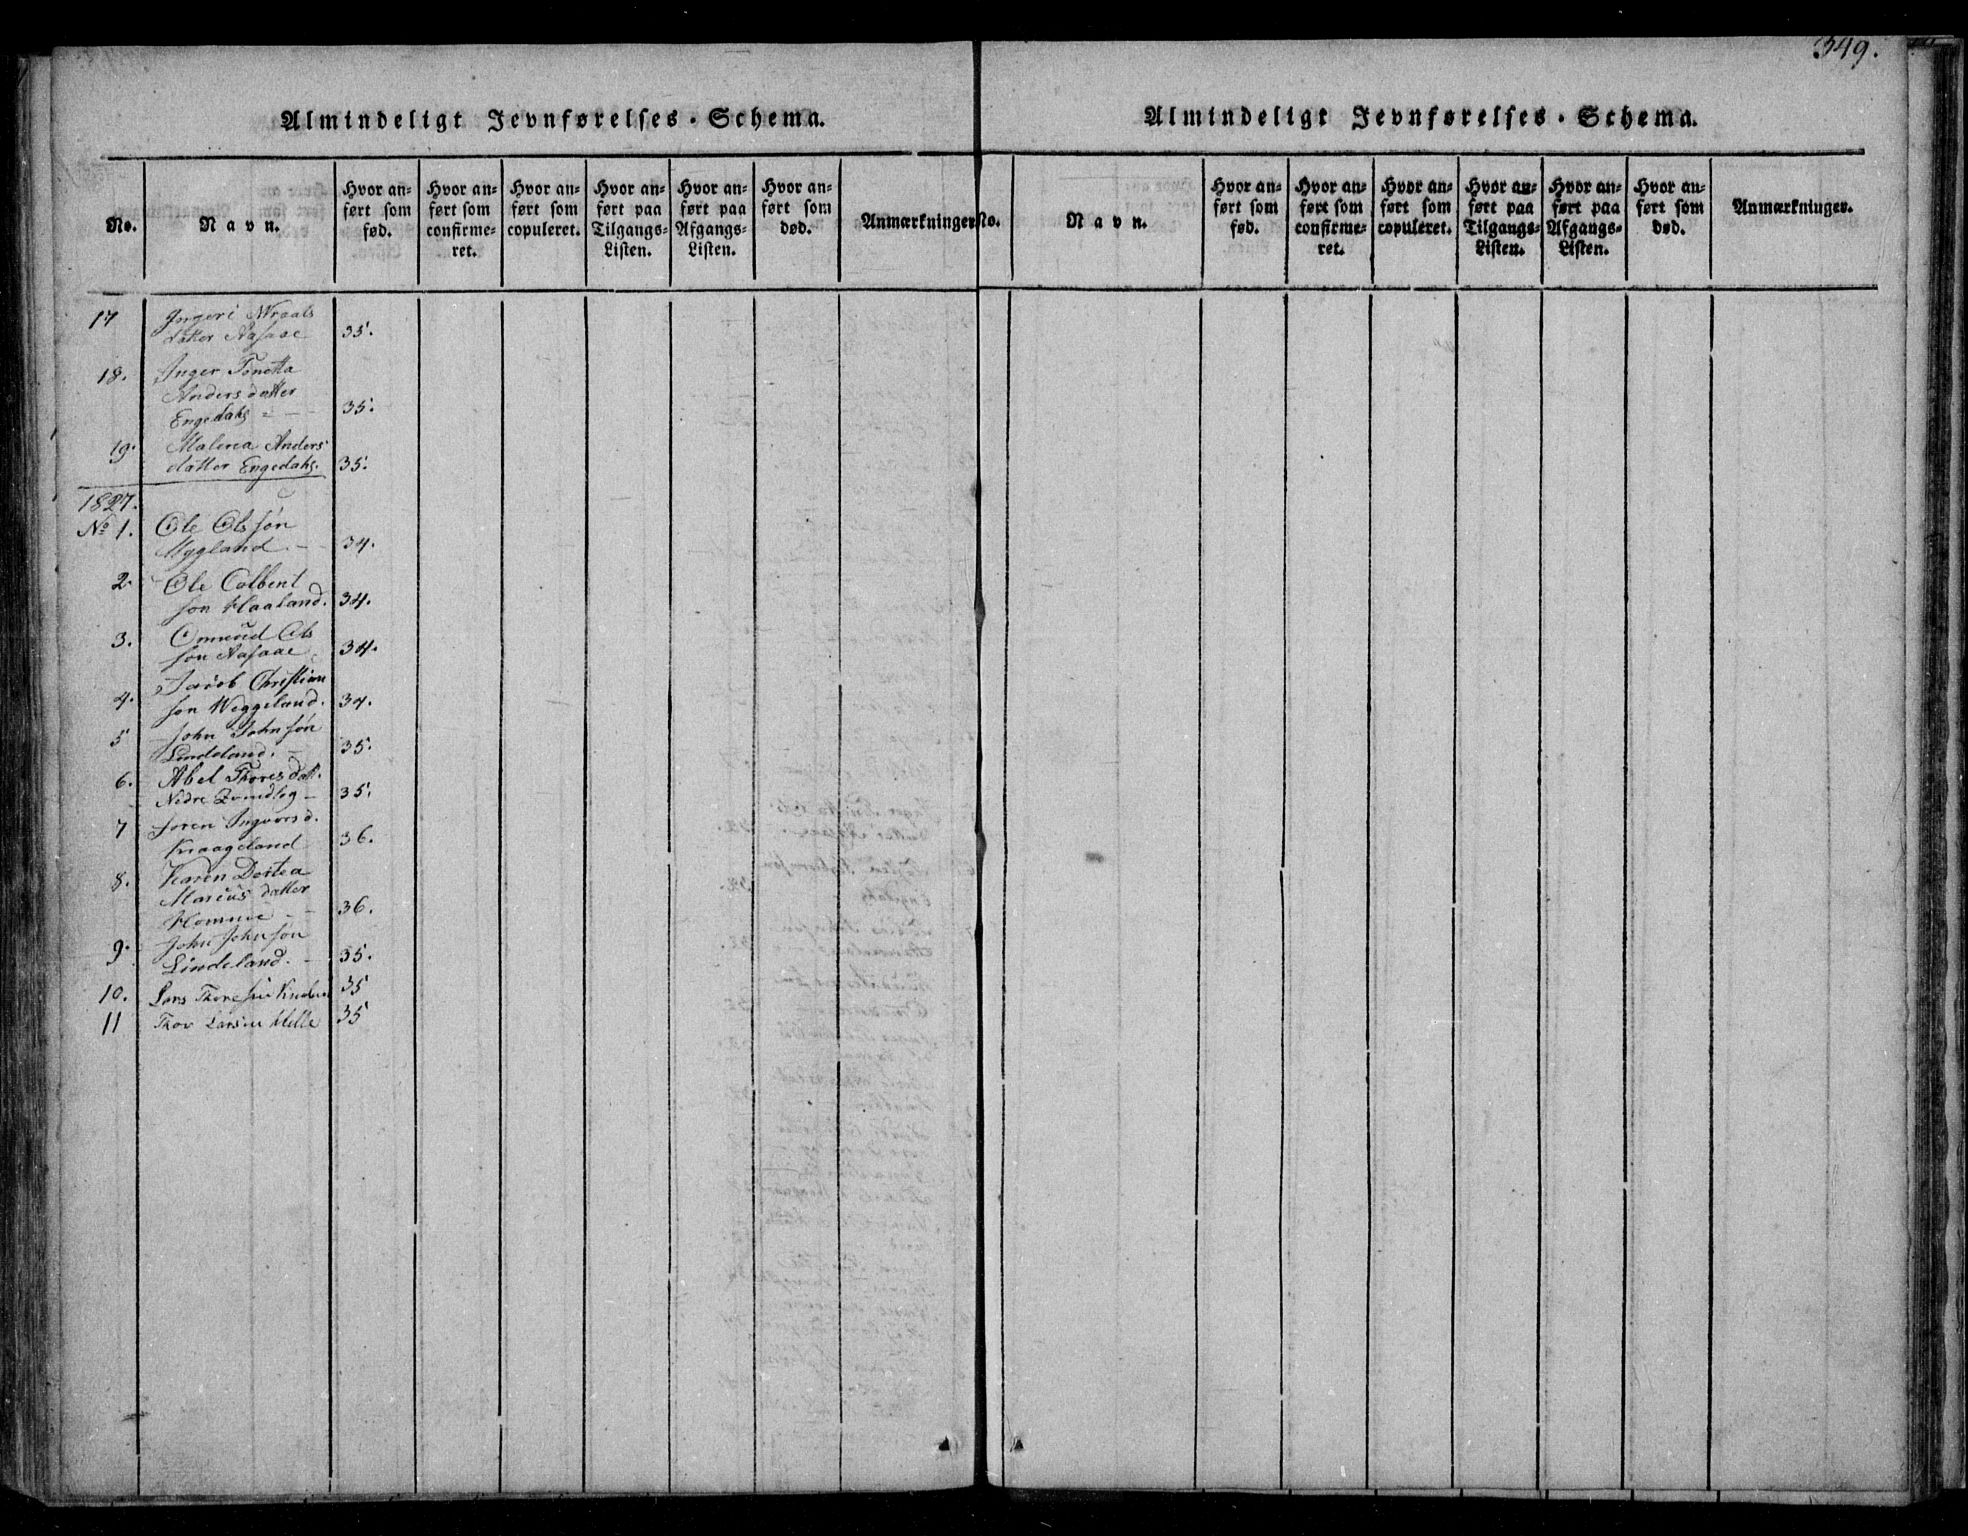 349.
Almindeligt Jevnførelses-Schema.
No.
Navn.
Hvor anført som fød.
Hvor anført som confirmeret.
Hvor anført som copuleret.
Hvor anført paa Tilgangs-Listen.
Hvor anført paa Afgangs-Listen.
Hvor anført som død.
Anmærkninger.
17 Ingeri
datter Aasaae 35.
18. Inger Tonetta
Andersdatter
Engedahl 35.
19. Malena Anders
datter Engedahl. 35.
1827.
No 1. Ole Olssøn
Mygland 34.
2. Ole Colbent
son Haaland. 34.
3. Ommund Ols
søn Aasaae 34.
4. Jacob Christian
søn Weggeland. 34.
5 John Johnsøn
Lindeland. 35.
6. Abel Thores datt.
Nedre 35.
7 Soren Ingvors d.
36.
8. Karen Dortea
Marius datter
Homme 36.
9. John Johnsøn
Lindeland. 35.
10. Lars Thoresen 35
11 Thor Larsen 35
Almindeligt Jevnførelses-Schema.
No.
Navn.
Hvor anført som fød.
Hvor anført som confirmeret.
Hvor anført som copuleret.
Hvor anført paa Tilgangs-Listen.
Hvor anført paa Afgangs-Listen.
Hvor anført som død.
Anmærkninger.